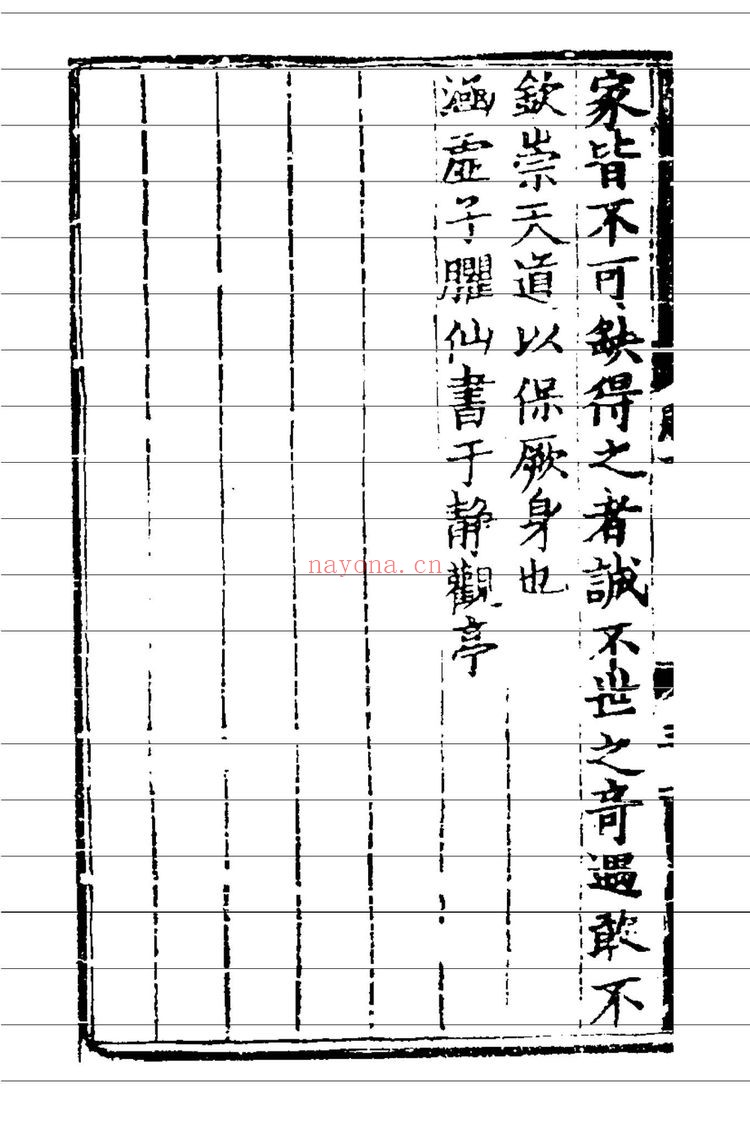 家皆不可缺得之者誠不世之奇遇敢不
欽崇天道以保厥身也
涵虛子臞仙書于靜觀亭
nayona.cn